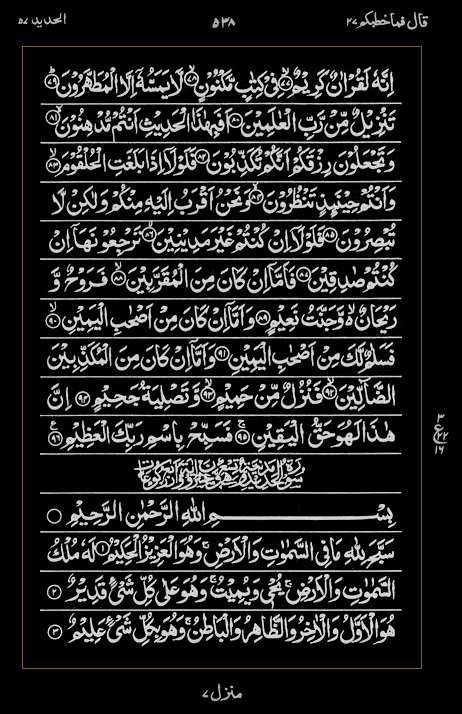 قال فما خطبكم ٢٧
٥٣٨
الحديد ٥٧
اِنَّهٗ لَقُرْاٰنٌ كَرِيْمٌ ﴿٧٧﴾ فِيْ كِتٰبٍ مَّكْنُوْنٍ ﴿٧٨﴾ لَّا يَمَسُّهٗٓ اِلَّا الْمُطَهَّرُوْنَ ﴿٧٩﴾
تَنْزِيْلٌ مِّنْ رَّبِّ الْعٰلَمِيْنَ ﴿٨٠﴾ اَفَبِهٰذَا الْحَدِيْثِ اَنْتُمْ مُّدْهِنُوْنَ ﴿٨١﴾
وَتَجْعَلُوْنَ رِزْقَكُمْ اَنَّكُمْ تُكَذِّبُوْنَ ﴿٨٢﴾ فَلَوْلَآ اِذَا بَلَغَتِ الْحُلْقُوْمَ ﴿٨٣﴾
وَاَنْتُمْ حِيْنَئِذٍ تَنْظُرُوْنَ ﴿٨٤﴾ وَنَحْنُ اَقْرَبُ اِلَيْهِ مِنْكُمْ وَلٰكِنْ لَّا
تُبْصِرُوْنَ ﴿٨٥﴾ فَلَوْلَآ اِنْ كُنْتُمْ غَيْرَ مَدِيْنِيْنَ ﴿٨٦﴾ تَرْجِعُوْنَهَآ اِنْ
كُنْتُمْ صٰدِقِيْنَ ﴿٨٧﴾ فَاَمَّآ اِنْ كَانَ مِنَ الْمُقَرَّبِيْنَ ﴿٨٨﴾ فَرَوْحٌ وَّ
رَيْحَانٌ ۙ وَّجَنَّتُ نَعِيْمٍ ﴿٨٩﴾ وَاَمَّآ اِنْ كَانَ مِنْ اَصْحٰبِ الْيَمِيْنِ ﴿٩٠﴾
فَسَلٰمٌ لَّكَ مِنْ اَصْحٰبِ الْيَمِيْنِ ﴿٩١﴾ وَاَمَّآ اِنْ كَانَ مِنَ الْمُكَذِّبِيْنَ
الضَّآلِّيْنَ ﴿٩٢﴾ فَنُزُلٌ مِّنْ حَمِيْمٍ ﴿٩٣﴾ وَّتَصْلِيَةُ جَحِيْمٍ ﴿٩٤﴾ اِنَّ
هٰذَا لَهُوَ حَقُّ الْيَقِيْنِ ﴿٩٥﴾ فَسَبِّحْ بِاسْمِ رَبِّكَ الْعَظِيْمِ ﴿٩٦﴾
٣
ع ٢٢
١٦
بِسْمِ اللّٰهِ الرَّحْمٰنِ الرَّحِيْمِ
سَبَّحَ لِلّٰهِ مَا فِي السَّمٰوٰتِ وَالْاَرْضِ ۚ وَهُوَ الْعَزِيْزُ الْحَكِيْمُ ﴿١﴾ لَهٗ مُلْكُ
السَّمٰوٰتِ وَالْاَرْضِ ۚ يُحْيٖ وَيُمِيْتُ ۚ وَهُوَ عَلٰى كُلِّ شَيْءٍ قَدِيْرٌ ﴿٢﴾
هُوَ الْاَوَّلُ وَالْاٰخِرُ وَالظَّاهِرُ وَالْبَاطِنُ ۚ وَهُوَ بِكُلِّ شَيْءٍ عَلِيْمٌ ﴿٣﴾
منزل ٧